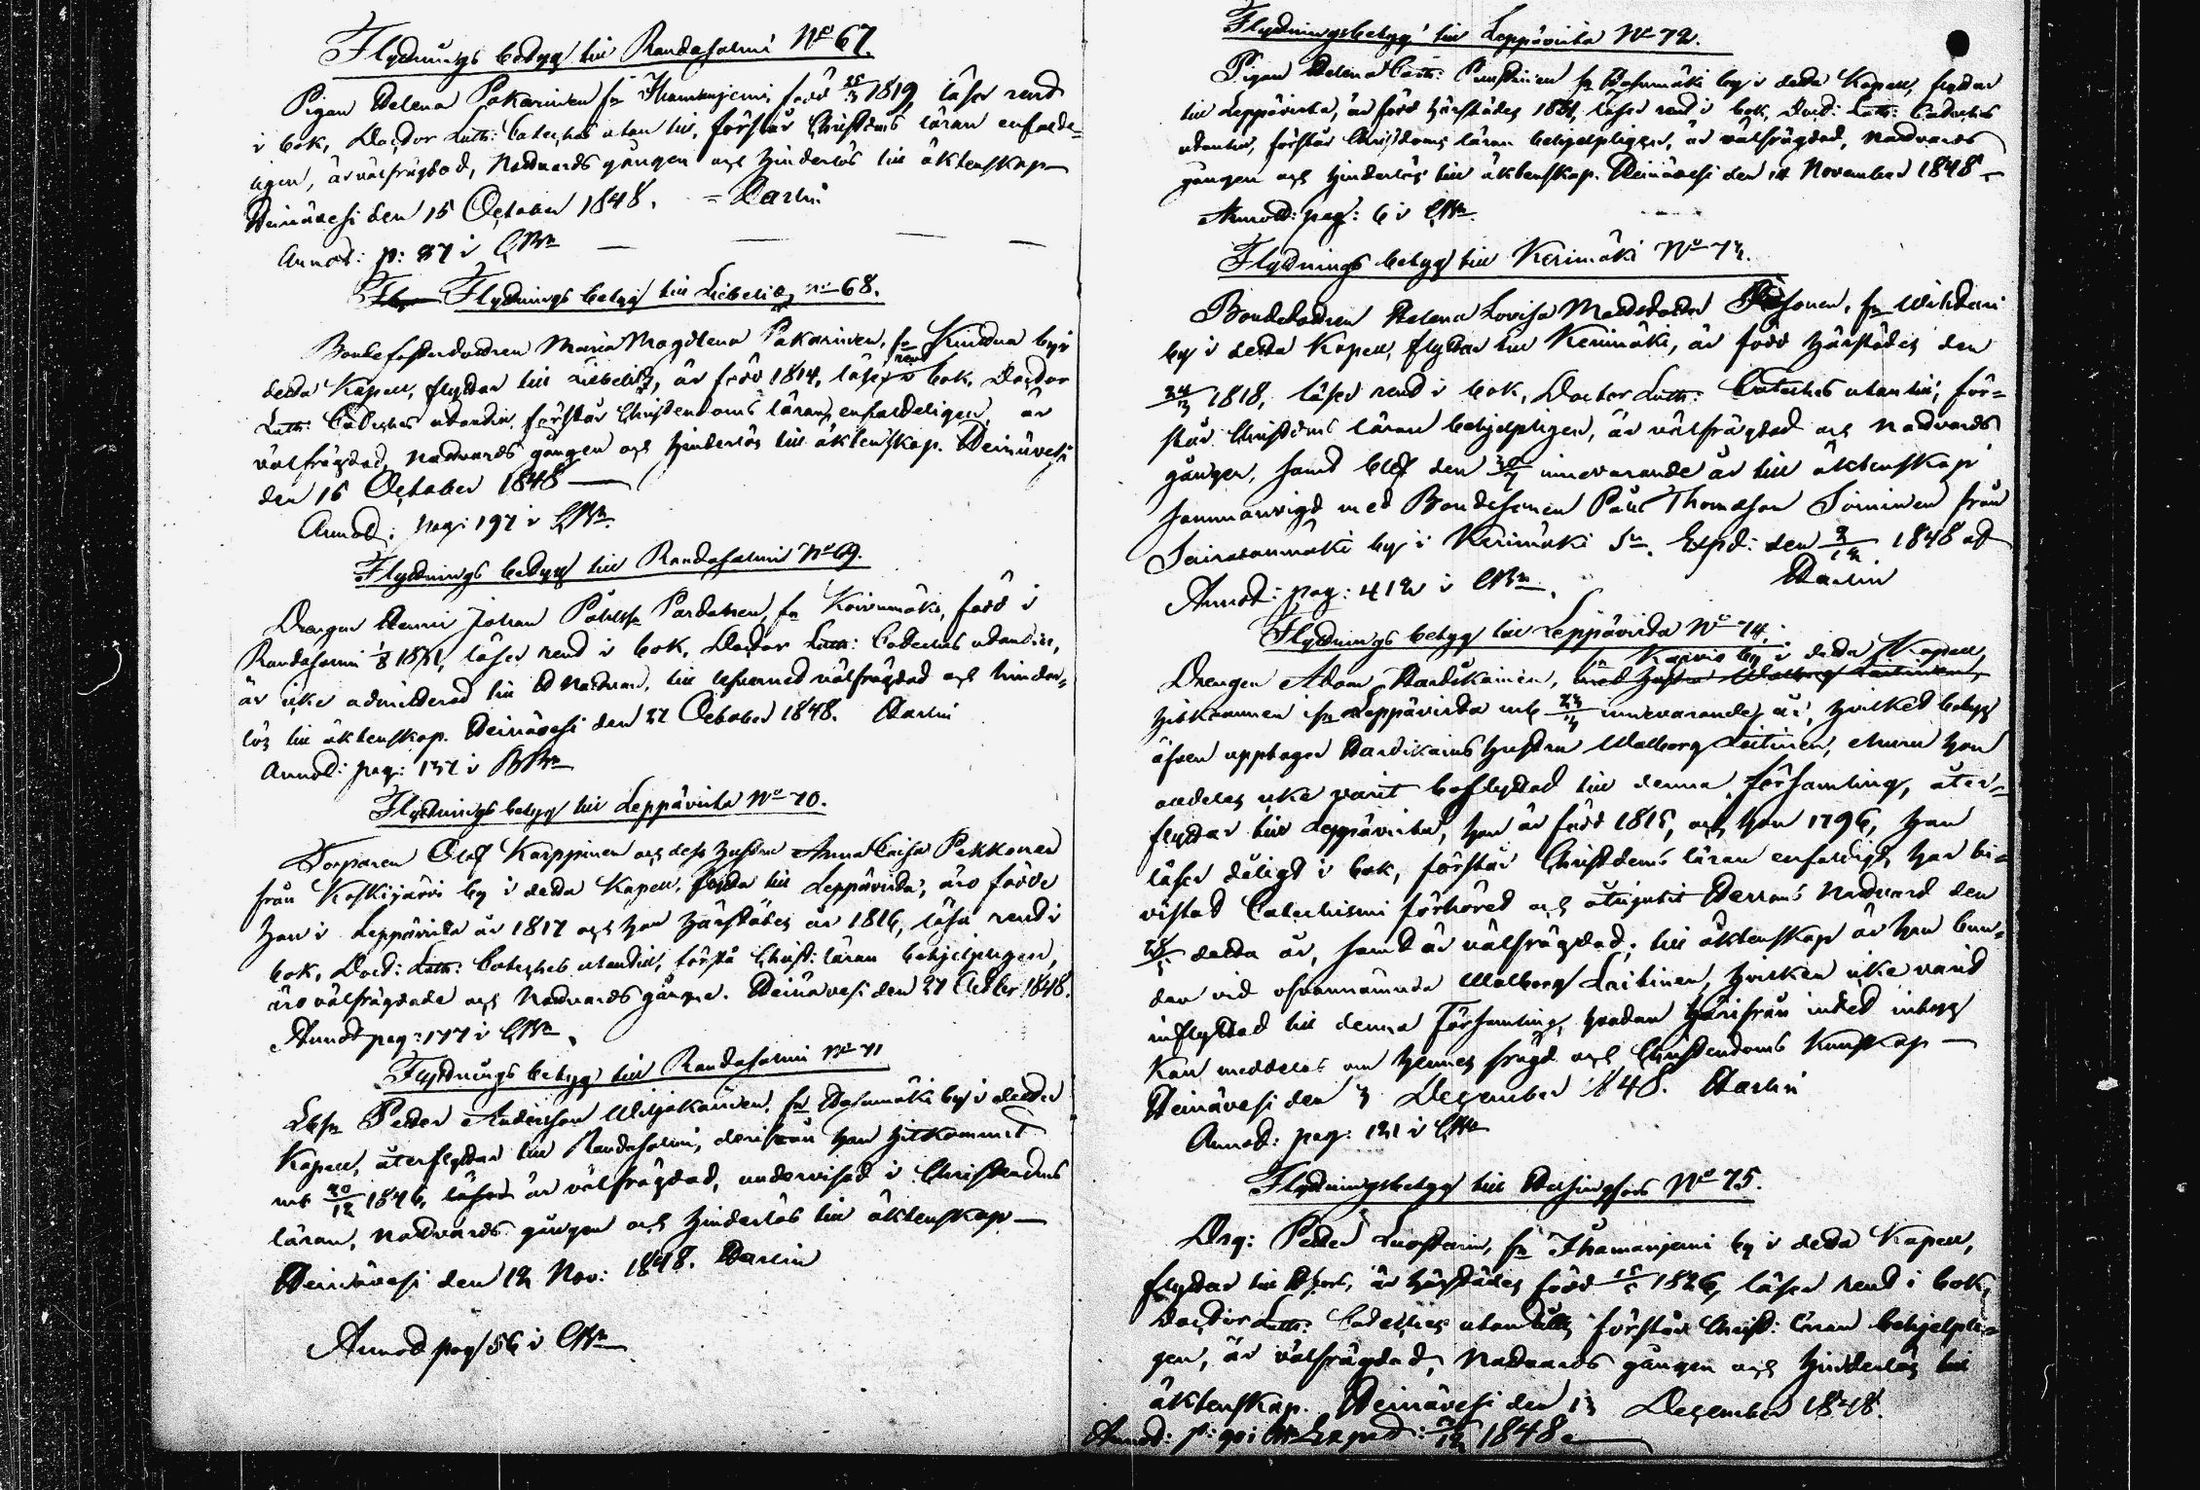 Flyttnings betyg till Randasalmi No 67.
Pigan Helena Pakarinen fr. Ihamanjemi, född 25/3 1819, läser rent
i bok, Doctor Luth: Cateches utan till, förstår Christdoms läran enfalde-
ligen, är välfrägdad, Nattvards gången och hinderlös till äktenskap
Heinävesi den 15 October 1848. Harlin
Annot: p: 87 i CBn
Flyttnings betyg till Libelitz No 68.
Bondefosterdottren Maria Magdlena Pakarinen, fr by i
detta Kapell, flyttar till Libelitz, är född 1814, läser rent i bok, Doctor
Luth: Cateches utantill, förstår Christendoms läran enfaldeligen, är
välfrägdad, nattvards gången och hinderlös till äktenskap. Heinävesi
den 15 October 1848
Annot: pag: 197 i CBn
Flyttnings betyg till Randasalmi No 69.
Drengen Henric Johan Påhlss. Pardanen, fr Koivumäki, född i
Randasalmi 1/8 läser rent i bok, Doctor Luth: Cateches utantill,
är icke admitterad till H Nattvard, till lefverned välfrägdad och hinder-
lös till äktenskap. Heinävesi den 22 October 1848. Harlin
Annot: pag: 137 i
Flyttnings betyg till Leppävirta No 70.
Torparen Olof Karppinen och dess hustru Anna Caisa Pekkonen
från Koskijärvi by i detta Kapell, flytta till Leppävirta, äro födde
han i Leppävirta år 1817 och hon härstädes år 1816, läsa rent i
bok, Doct: Luth: Cateches utantill, förstå Christ: läran behjelpligen,
äro välfrägdade och Nattvards gångne. Heinävesi den 27 Octber 1848.
Annot pag: 177 i CBn
Flyttnings betyg till Randasalmi No 71
Peter Andersson Wiljakainen, fr Hasumäki by i detta
Kapell, återflyttar till Randasalmi, derifrån han hitkommit
mb 20/12 1846, är välfrägdad, undervisad i Christendoms
läran, nattvards gången och hinderlös till äktenskap
Heinävesi den 12 Nov: 1848. Harlin
Annot pag 56 i CBn
Flyttningsbetyg till Leppävirta No 72.
Pigan Helena Cath: fr Hasumäki by i detta Kapell, flyttar
till Leppävirta, är född härstädes läser rent i bok, Doct: Luth: Cateches
utantill, förstår Christdoms läran behjelpligen, är välfrägdad, Nattvards
gången och hinderlös till äktenskap. Heinävesi den November 1848
Annot: pag: 6 i CBn.
Flyttnings betyg till Kerimäki No 73.
Bondedottren Helena Lovisa Mattsdotter fr Wihtari
by i detta Kapell, flyttar till Kerimäki, är född härstädes den
24/3 1818, läser rent i bok, Doctor Luth: Cateches utantill, för-
står Christdoms läran behjelpligen, är välfrägdad och nattvards
gången, samt blef den 30/7 innevarande år till äktenskap
sammanvigd med Bondesonen Påul Thomasson Toivinen från
by i Kerimäki Sn. Exped: den 3/12 1848 af
Annot: pag: 412 i CBn. Harlin
Flyttnings betyg till Leppävirta No 74.
fr Karvio by i detta Kapell,
Drengen Adam Hardikainen, med hustru Walborg Laitinen,
hitkommen fr Leppävirta innevarande år, hvilket betyg
äfven upptager Hardikains hustru Walborg Laitinen, ehuru hon
aldeles icke varit besflyttad till denna församling, åter-
flyttar till Leppävirta, han är född 1815, och hon 1796, han
läser dåligt i bok, förstår Christdoms läran enfaldigt, har bi-
vistat Catechismi förhöret och åtnjutit Herrans Nattvard den
detta år, samt är välfrägdad; till äktenskap är han bun-
den vid ofvannämnda Walborg Laitinen, hvilken icke varit
inflyttad till denna Församling, hvadan härifrån intet intyg
kan meddelas om hennes frägd och Christendoms kunskap
Heinävesi den 3 December 1848. Harlin
Annot: pag: 121 i CBn
Flyttningsbetyg till Helsingfors No 75.
Drg: Petter Luostarin, fr Ihamanjemi by i detta Kapell,
flyttar till H:fors, är härstädes född 1826, läser rent i bok,
Doctor Luth: Cateches utantill, förstår Christ: läran behjelpli-
gen, är välfrägdad, Nattvards gången och hinderlös till
äktenskap. Heinävesi den 13 December 1848.
Annot: p: 90 i Exped: 1848